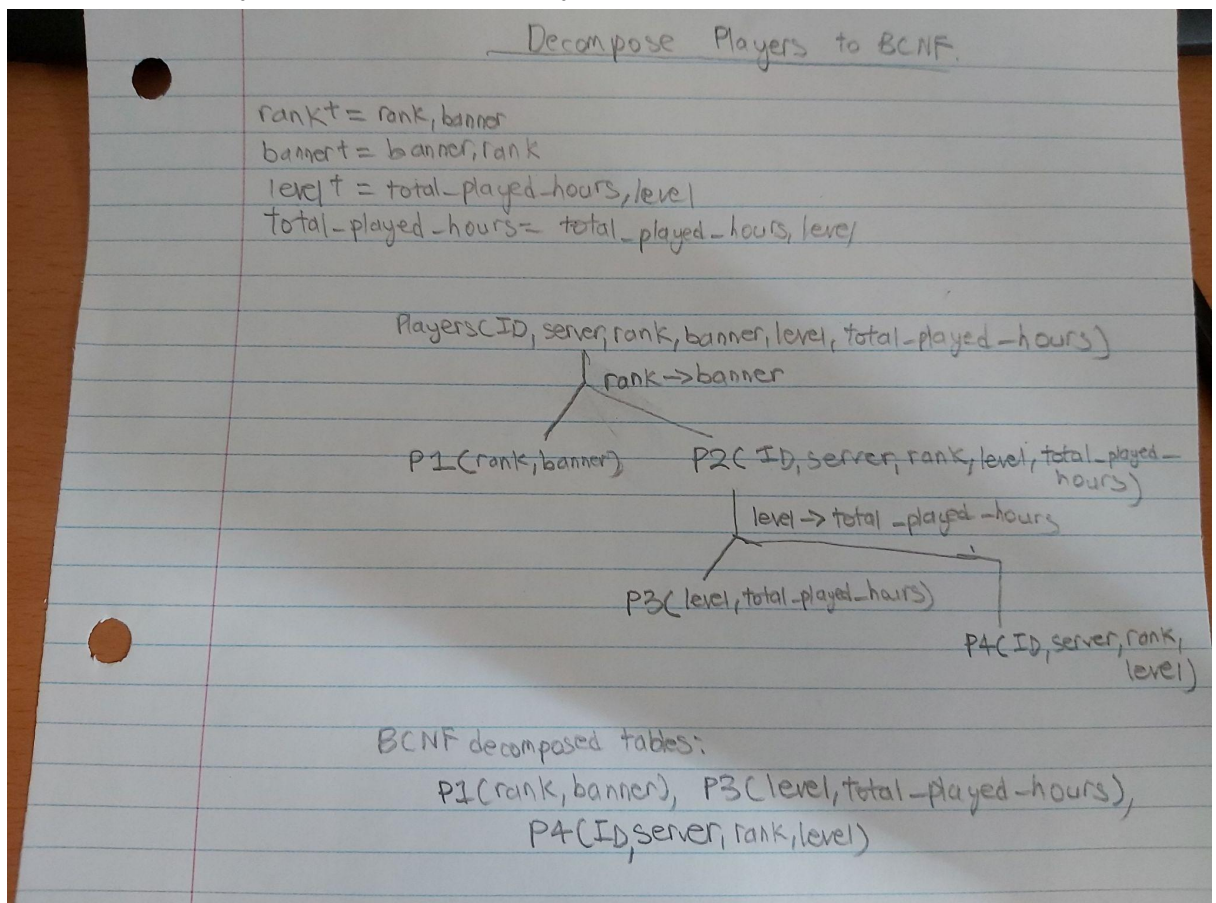 Decompose Players to BCNF.
rank+ = rank, banner
banner+ = banner, rank
level + = total_played_hours, level
total_played_hours = total_played_hours, level
Players(ID, server, rank, banner, level, total_played_hours)
rank->banner
P1(rank, banner) P2( ID, server, rank, level, total_played_
hours)
level -> total_played_hours
P3( level, total_played_hours)
P4( ID, server, rank,
level)
BCNF decomposed tables:
P1(rank, banner), P3(level, total_played_hours),
P4(ID, server, rank, level)